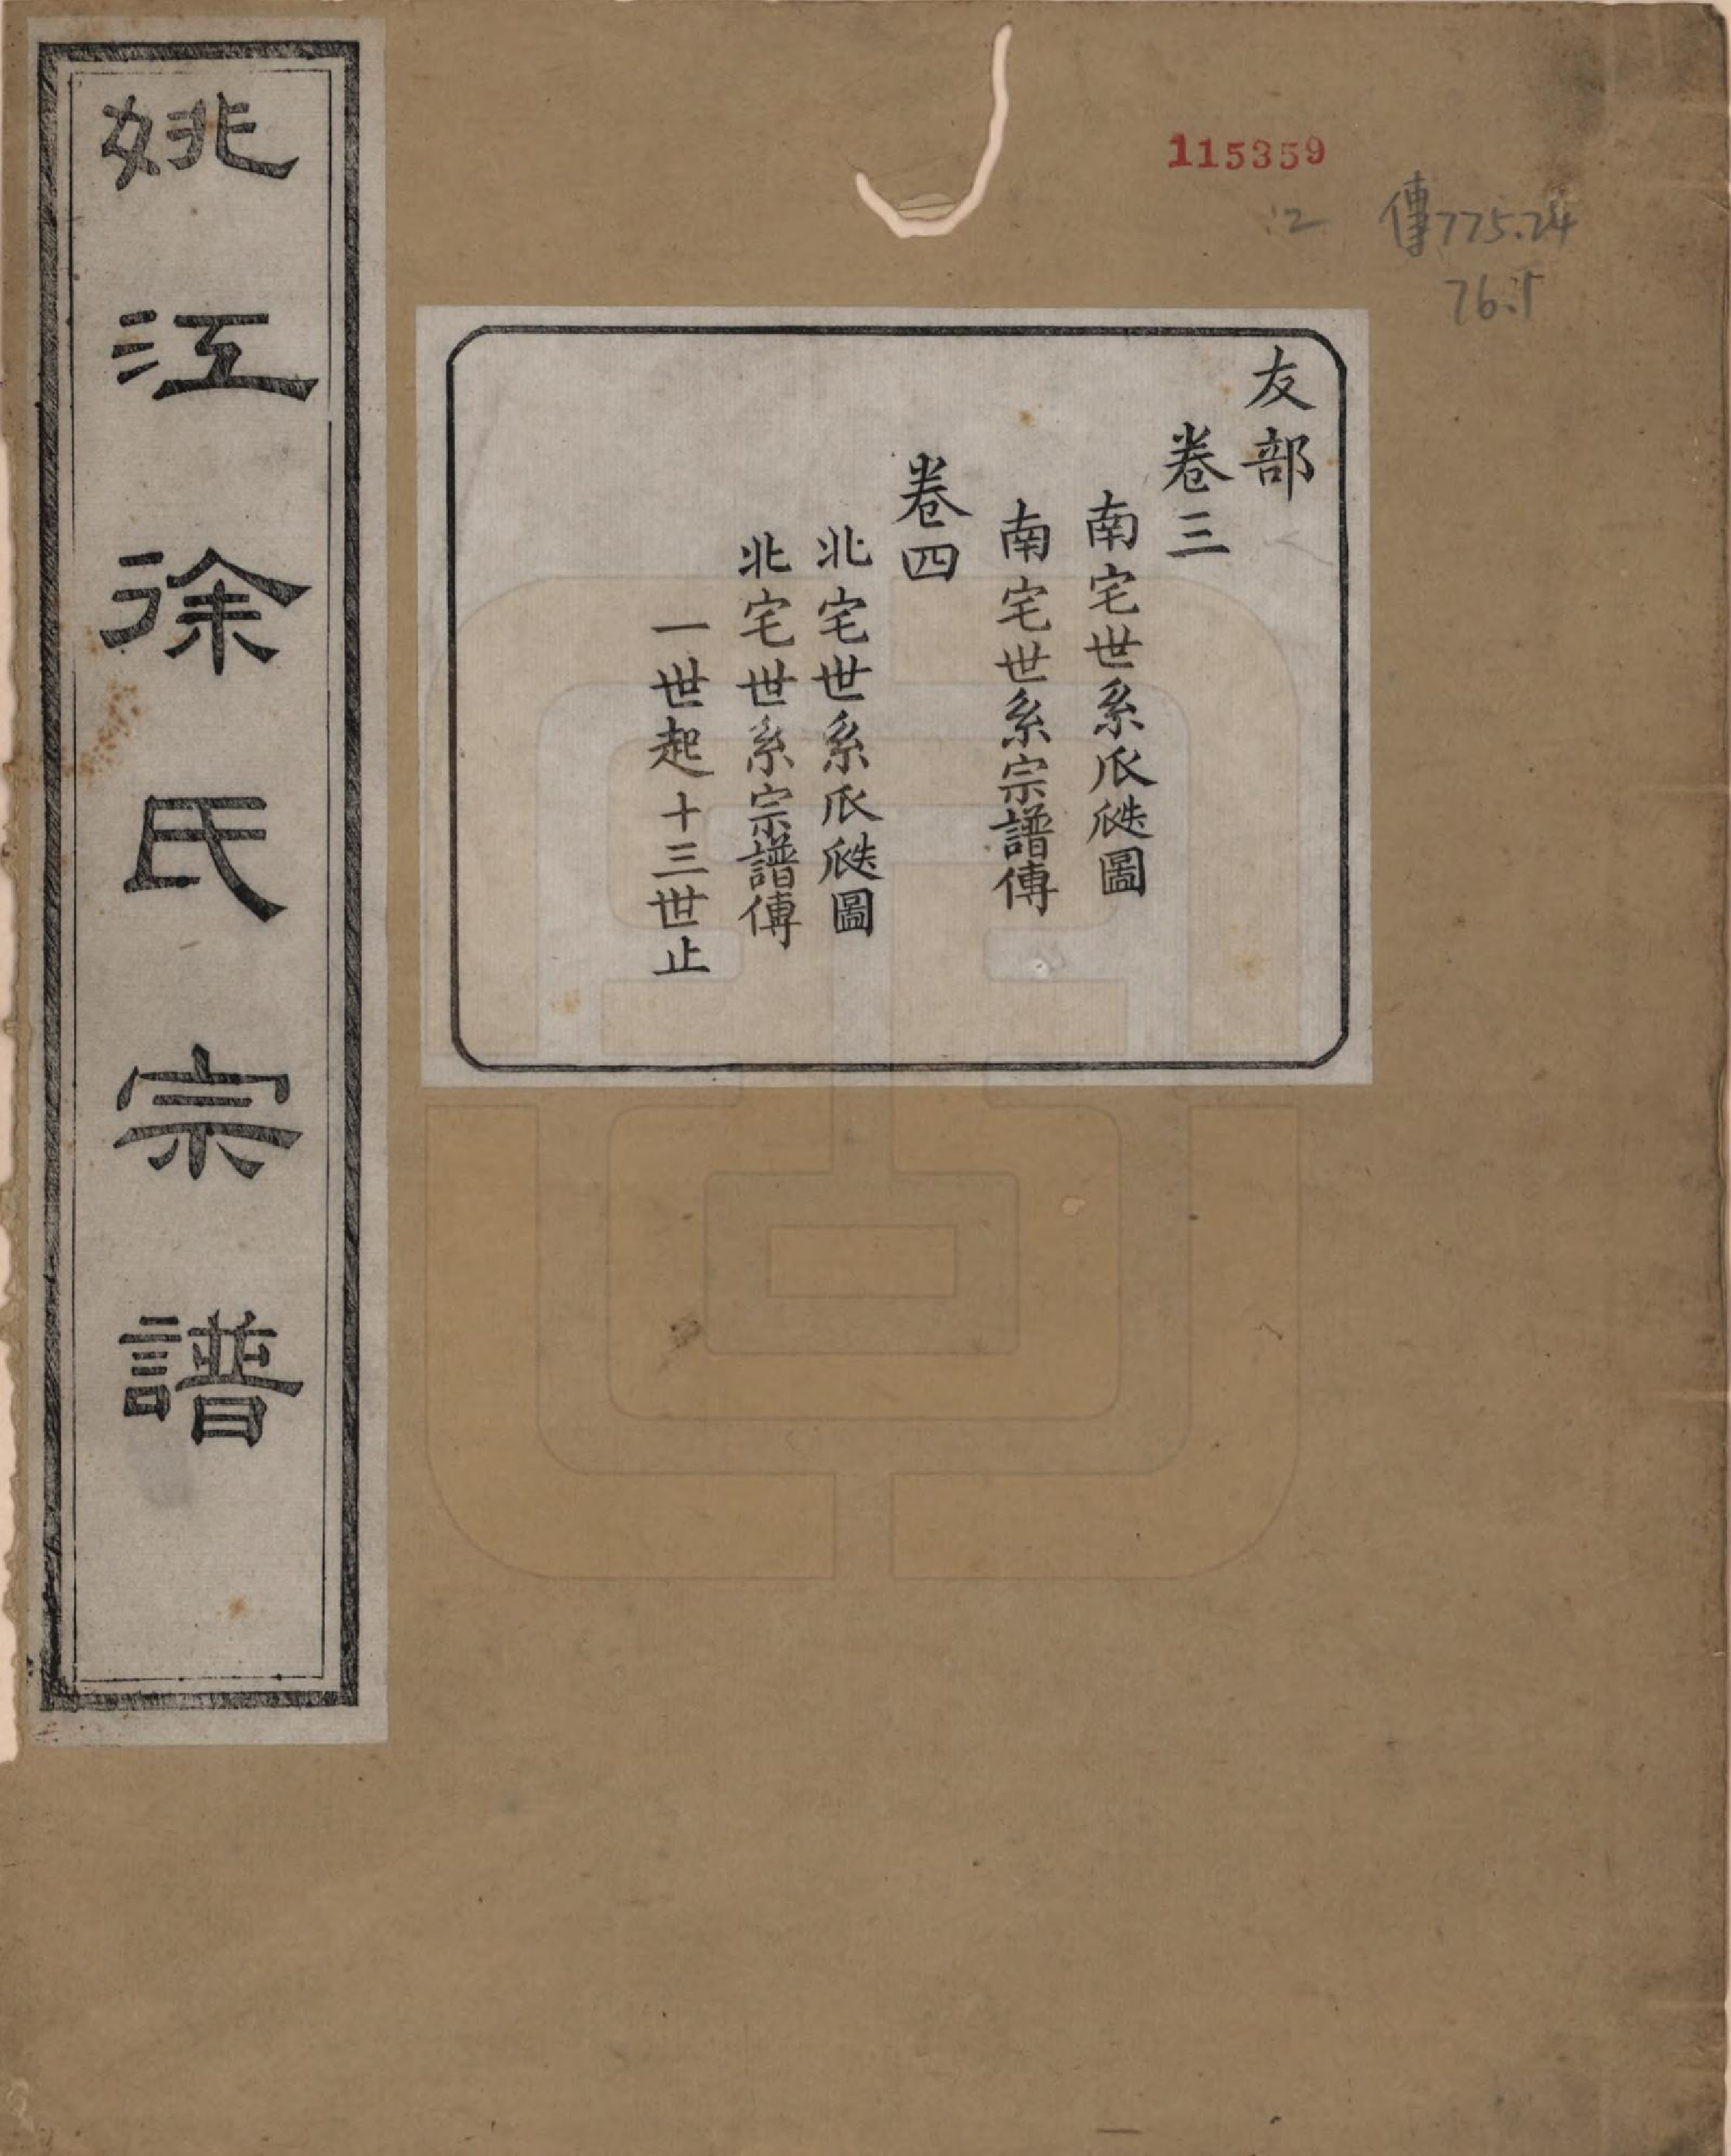 姚江徐氏宗譜
115359
:2
傳775.24
76.1
友部
卷三
南宅世系瓜瓞圖
南宅世系宗譜傳
卷四
北宅世系瓜瓞圖
北宅世系宗譜傳
一世起十三世止